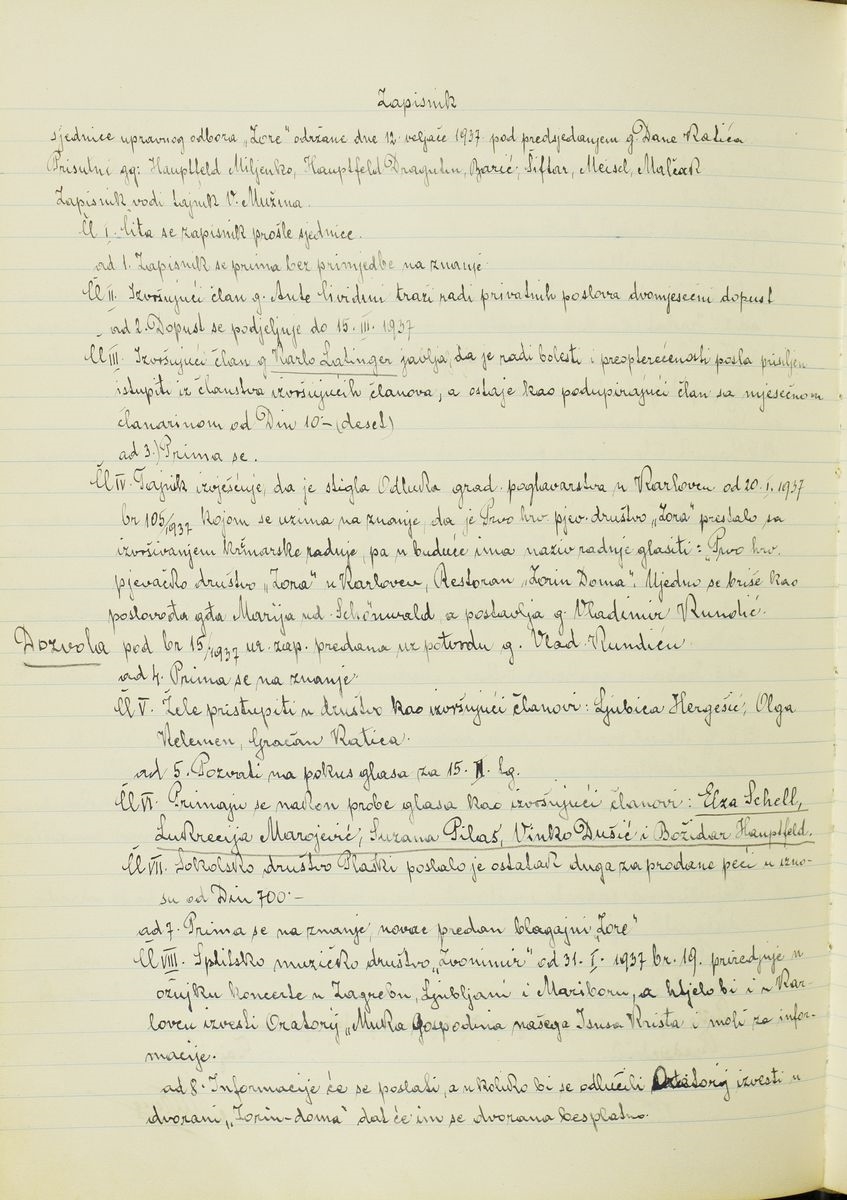 Zapisnik
sjednice upravnog odbora „Zore" održane dne 12 veljače 1937 pod predsjedanjem g. Dane Katića
Prisutni gg: Hauptfeld Miljenko, Hauptfeld Dragutin, Barić, Šiftar, Meisel, Malčak
Zapisnik vodi tajnik V. Mužina.
Čl I. Čita se zapisnik prošle sjednice.
ad 1. Zapisnik se prima bez primjedbe na znanje
Čl II. Izvršujući član g. Ante Cividini traži radi privatnih poslova dvomjesečni dopust
ad 2. Dopust se podjeljuje do 15. III. 1937
Čl III. Izvršujući član g Karlo Latinger javlja, da je radi bolesti i preopterećenosti posla prisiljen
istupiti iz članstva izvršujućih članova, a ostaje kao podupirajući član sa mjesečnom
članarinom od Din 10.- (deset)
ad 3.) Prima se.
Čl IV. Tajnik izvješćuje, da je stigla Odluka grad. poglavarstva u Karlovcu od 20. I. 1937
br 105/1937 kojom se uzima na znanje, da je Prvo hrv. pjev. društvo „Zora" prestalo sa
izvršivanjem krčmarske radnje, pa u buduće ima naziv radnje glasiti: "Prvo hrv.
pjevačko društvo „Zora" u Karlovcu, Restoran „Zorin Doma". Ujedno se briše kao
poslovođa gđa Marija ud. Schönwald a postavlja g. Vladimir Kundić.
Dozvola pod br 15/1937 ur. zap. predana uz potvrdu g. Vlad. Kundiću
ad 4. Prima se na znanje
Čl V. Žele pristupiti u društvo kao izvršujući članovi: Ljubica Hergešić, Olga
Kelemen, Gračan Katica.
ad 5. Pozvati na pokus glasa za 15. II. tg.
Čl VI. Primaju se nakon probe glasa kao izvršujući članovi: Elza Schell,
Lukrecija Marojević, Suzana Pilaš, Vinko Dušić i Božidar Hauptfeld.
Čl VII. Sokolsko društvo Plaški poslalo je ostatak duga za prodane peći u izno-
su od Din 700.-
ad 7. Prima se na znanje, novac predan blagajni „Zore"
Čl VIII. Splitsko muzičko društvo „Zvonimir" od 31. I. 1937 br. 19. priredjuje u
ožujku koncerte u Zagrebu, Ljubljani i Mariboru, a htjelo bi i u Kar-
lovcu izvesti Oratorij „Muka Gospodina našega Isusa Krista i moli za infor-
macije.
ad 8. Informacije će se poslati, a ukoliko bi se odlučili Oratorij izvesti u
dvorani „Zorin-doma" dat će im se dvorana besplatno.